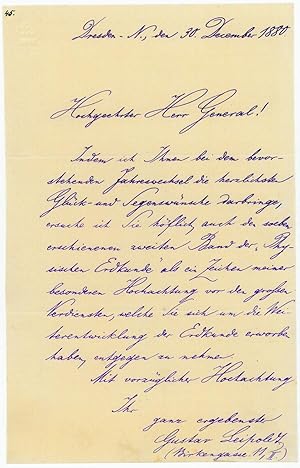 45.
Dresden-N., den 30. December 1880
Hochgeehrter Herr General!
Indem ich Ihnen bei dem bevor-
stehenden Jahreswechsel die herzlichsten
Glück- und Segenswünsche darbringe,
ersuche ich Sie höflich, auch den soeben
erschienenen zweiten Band der „Phy-
sischen Erdkunde" als ein Zeichen meiner
besonderen Hochachtung vor den großen
Verdiensten, welche Sie sich um die Wei-
terentwicklung der Erdkunde erworben
haben, entgegen zu nehmen.
Mit vorzüglicher Hochachtung
Ihr
ganz ergebenster
Gustav Leipoldt
(Birkengasse